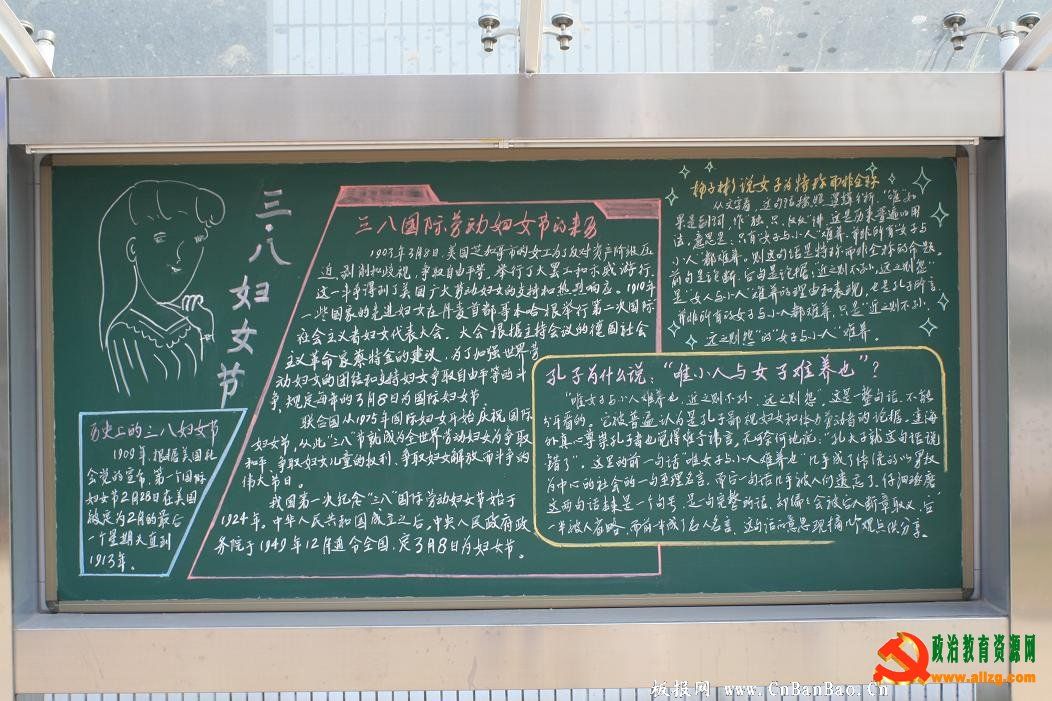 三·八妇女节
历史上的三八妇女节
1909年,根据美国社
会党的宣布,第一个国际
妇女节2月28日在美国
被定为2月的最后
一个星期天直到
1913年。
三八国际劳动妇女节的来历
1903年3月8日,美国芝加哥市的女工为了反对资产阶级压
迫、剥削和歧视,争取自由平等,举行了大罢工和示威游行.
这一斗争得到了美国广大劳动妇女的支持和热烈响应。1910年
一些国家的先进妇女在丹麦首都哥本哈根举行第二次国际
社会主义者妇女代表大会。大会根据主持会议的德国社会
主义革命家蔡特金的建议,为了加强世界劳
动妇女的团结和支持妇女争取自由平等的斗
争,规定每年的3月8日为国际妇女节。
联合国从1975年国际妇女年开始庆祝国际
妇女节,从此"三八"节就成为全世界劳动妇女为争取
和平、争取妇女儿童的权利、争取妇女解放而斗争的
伟大节日。
我国第一次纪念"三八"国际劳动妇女节始于
1924年。中华人民共和国成立之后,中央人民政府政
务院于1949年12月通令全国,定3月8日为妇女节。
说女子为特称而非全称
从文字看,这句话按照逻辑分析,"唯"如
果是副词,作"独、只、仅仅"讲,这是历来普遍的用
法,意思是:只有"女子与小人"难养,并非所有"女子与
小人"都难养。则这句话是特称而非全称的命题。
前句是论断,后句是论据;近之则不孙,远之则怨"
是"女人与小人"难养的理由和表现,也是孔子所言,
并非所有的女子与小人都难养,只是"近之则不孙,
远之则怨"的"女子与小人"难养.
孔子为什么说:"唯小人与女子难养也"?
"唯女子与小人难养也,近之则不孙,远之则怨。这是一整句话,不能
分开看的。它被普遍认为是孔子鄙视妇女和体力劳动者的论据。连海
外真心尊崇孔子者也觉得难于讳言,无可奈何地说:"孔夫子就这句话说
错了"。这里的前一句话"唯女子与小人难养也"几乎成了传统的以男权
为中心的社会的一句至理名言,而后一句话几乎被人们遗忘了。仔细琢磨,
这两句话隶是一个句号,是一句完整的话,却偏偏会被后人断章取义,后
一半被人省略,而前半成了名人名言。这句话的意思现摘几个观点供分享。
政治教育资源网
www.allzg.com
板报网 www.CnBanBao.Cn